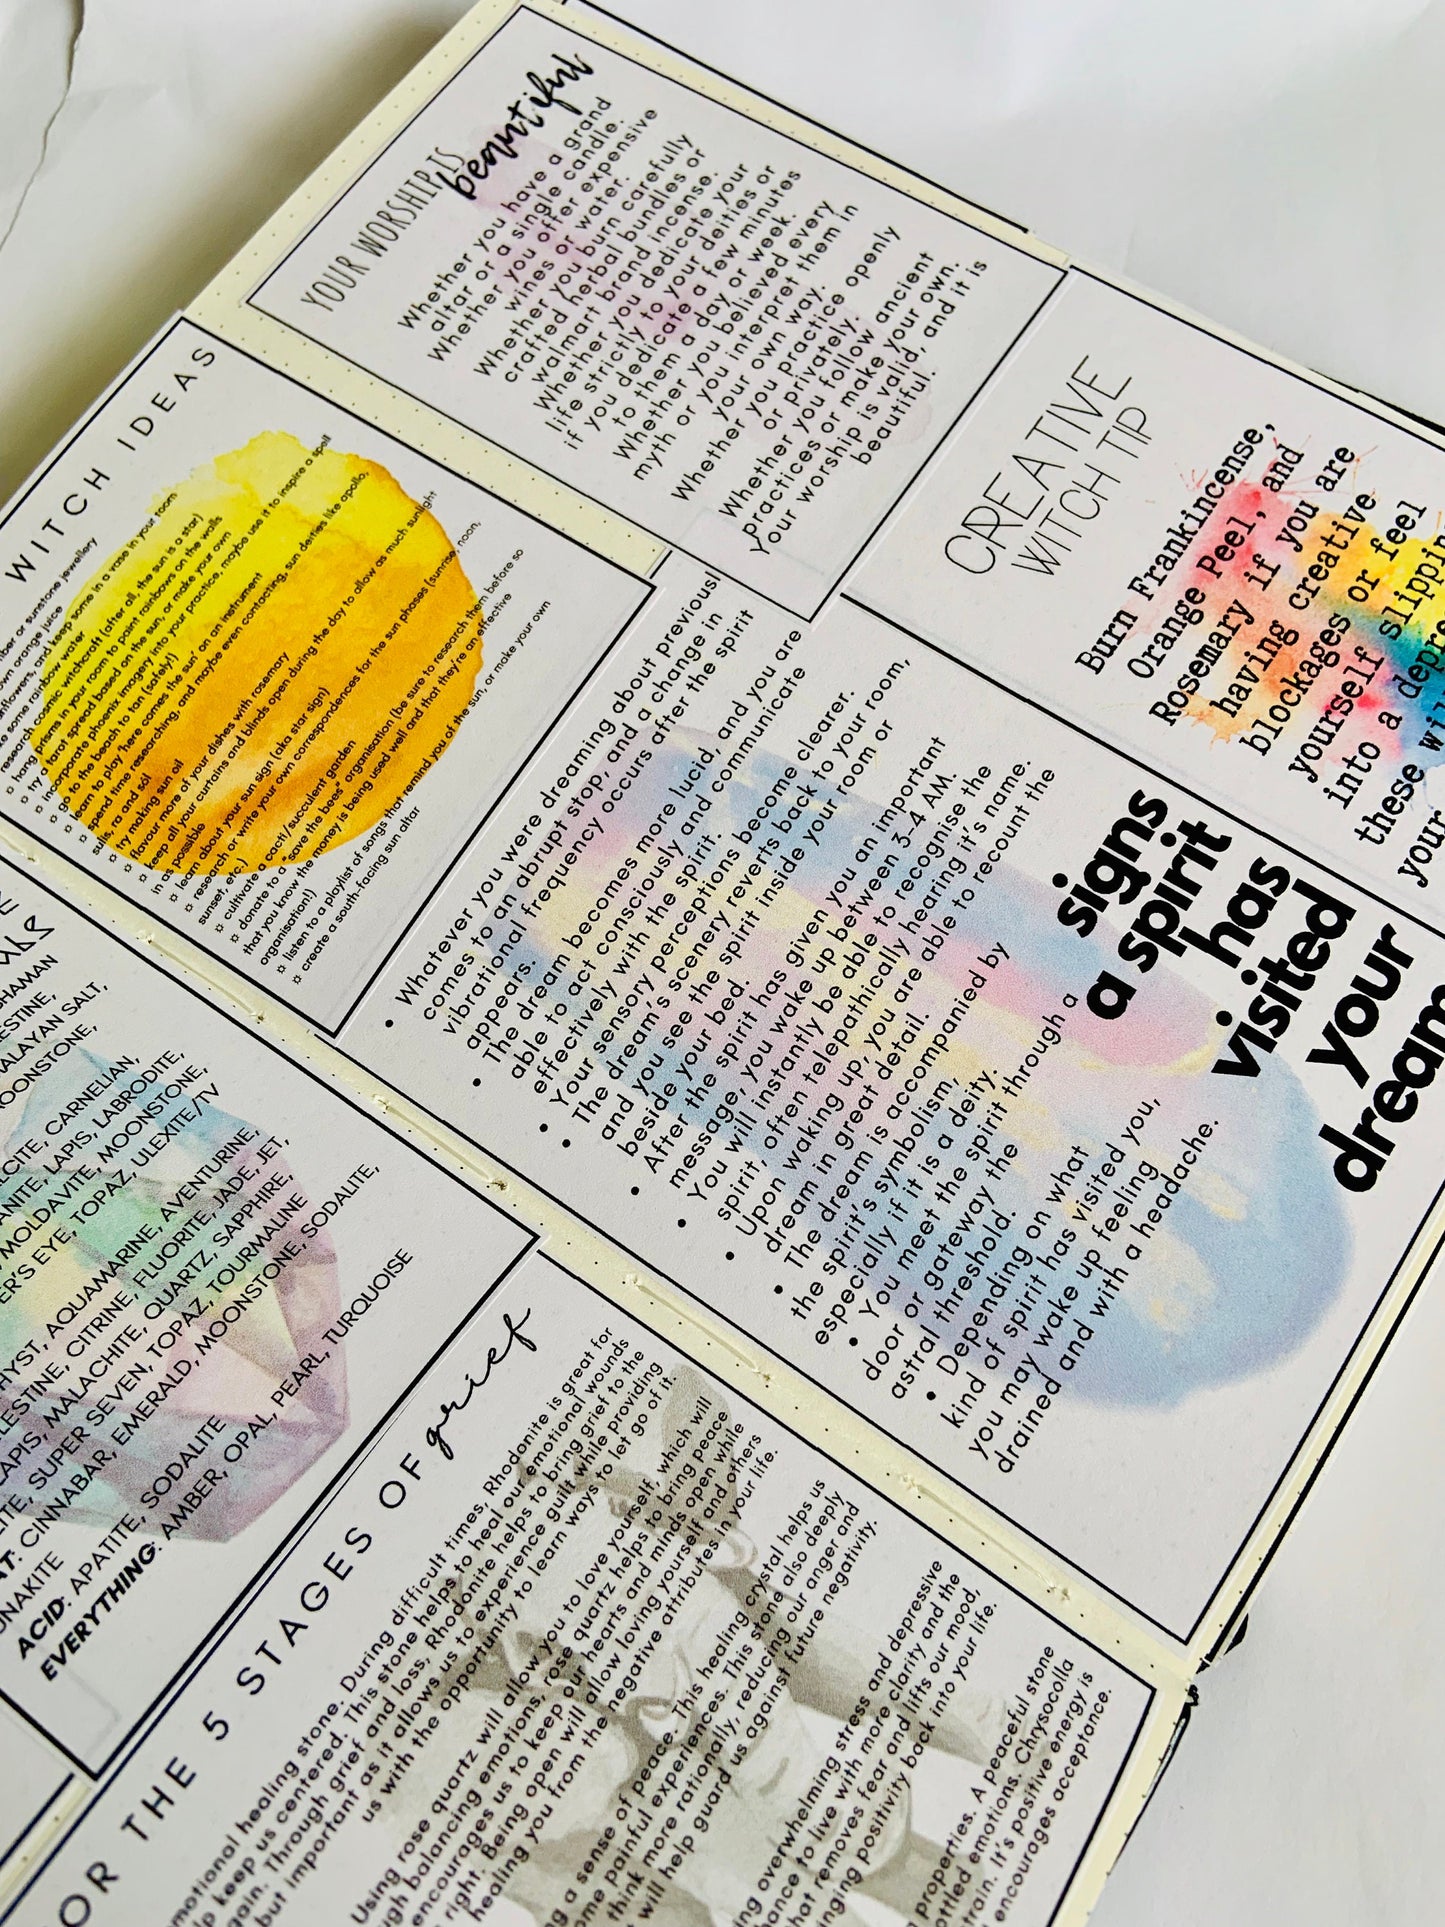 YOUR WORSHIP IS
beautiful
Whether you have a grand
altar or a single candle.
Whether you offer expensive
wines or water.
Whether you burn carefully
crafted herbal bundles or
walmart brand incense.
Whether you dedicate your
life strictly to your deities or
if you dedicate a few minutes
to them a day or week.
Whether you believed every
myth or you interpret them in
your own way.
Whether you practice openly
or privately.
Whether you follow ancient
practices or make your own.
Your worship is valid, and it is
beautiful.
CREATIVE
WITCH TIP
Burn Frankincense,
Orange Peel, and
Rosemary if you are
having creative
blockages or feel
yourself slippin
into a depre
these wil
your
WITCH IDEAS
mber or sunstone jewellery
own orange juice
unflowers, and keep some in a vase in your room
ke some rainbow water
research cosmic witchcraft (after all, the sun is a star)
¤ hang prisms in your room to paint rainbows on the walls
¤ try a tarot spread based on the sun, or make your own
¤ incorporate phoenix imagery into your practice, maybe use it to inspire a spell
¤ go to the beach to tan (safely!)
¤ learn to play 'here comes the sun' on an instrument
¤ spend time researching, and maybe even contacting, sun deities like apollo,
sulis, ra and sól
¤ try making sun oil
¤ flavour more of your dishes with rosemary
¤ keep all your curtains and blinds open during the day to allow as much sunlight
in as possible
¤ learn about your sun sign (aka star sign)
¤ research or write your own correspondences for the sun phases (sunrise, noon,
sunset, etc.)
¤ cultivate a cacti/succulent garden
¤ donate to a "save the bees" organisation (be sure to research them before so
that you know the money is being used well and that they're an effective
organisation!)
¤ listen to a playlist of songs that remind you of the sun, or make your own
¤ create a south-facing sun altar
signs
a spirit
has
visited
your
dream
• Whatever you were dreaming about previousl
comes to an abrupt stop, and a change in
vibrational frequency occurs after the spirit
appears.
• The dream becomes more lucid, and you are
able to act consciously and communicate
effectively with the spirit.
• Your sensory perceptions become clearer.
• The dream's scenery reverts back to your room,
and you see the spirit inside your room or
beside your bed.
• After the spirit has given you an important
message, you wake up between 3-4 AM.
• You will instantly be able to recognise the
spirit, often telepathically hearing it's name.
• Upon waking up, you are able to recount the
dream in great detail.
• The dream is accompanied by
the spirit's symbolism,
especially if it is a deity.
• You meet the spirit through a
door or gateway the
astral threshold.
• Depending on what
kind of spirit has visited you,
you may wake up feeling
drained and with a headache.
SHAMAN
ESTINE,
MALAYAN SALT,
OONSTONE,
LCITE, CARNELIAN,
ANITE, LAPIS, LABRODITE,
MOLDAVITE, MOONSTONE,
ER'S EYE, TOPAZ, ULEXITE/TV
HYST, AQUAMARINE, AVENTURINE,
LESTINE, CITRINE, FLUORITE, JADE, JET,
LAPIS, MALACHITE, QUARTZ, SAPPHIRE,
LITE, SUPER SEVEN, TOPAZ, TOURMALINE
AT: CINNABAR, EMERALD, MOONSTONE, SODALITE,
UNAKITE
ACID: APATITE, SODALITE
EVERYTHING: AMBER, OPAL, PEARL, TURQUOISE
OR THE 5 STAGES OF grief
motional healing stone. During difficult times, Rhodonite is great for
lp keep us centered. This stone helps to heal our emotional wounds
gain. Through grief and loss, Rhodonite helps to bring grief to the
but important as it allows us to experience guilt while providing
us with the opportunity to learn ways to let go of it.
Using rose quartz will allow you to love yourself, which will
ugh balancing emotions, rose quartz helps to bring peace
encourages us to keep our hearts and minds open while
right. Being open will allow loving yourself and others
healing you from the negative attributes in your life.
ng a sense of peace. This healing crystal helps us
ome painful experiences. This stone also deeply
think more rationally, reducing our anger and
will help guard us against future negativity.
ing overwhelming stress and depressive
hance to live with more clarity and the
hat removes fear and lifts our mood,
inging positivity back into your life.
properties. A peaceful stone
ottled emotions. Chrysocolla
train. It's positive energy is
encourages acceptance.